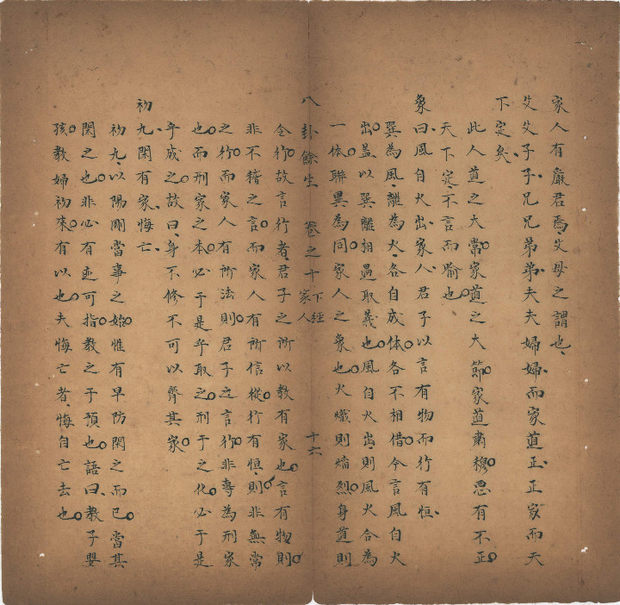 家人有嚴君焉父母之謂也
父父子子兄兄弟弟夫夫婦婦而家道正正家而天
下定矣
此人道之大常家道之大節家道肅穆思有不正
天下定不言而喻也
象曰風自火出家人君子以言有物而行有恒
巽為風離為火各自成体各不相借今言風自火
出盖以巽離相遇取義也風自火出則風火合為
一体聯異為同家人之象也火熾則烈身道則
八卦餘生 卷之十 下經 家人 十六
令行故言行者君子之所以教有家也言有物則
非不稽之言而家人有所信從行有恒則非無常
之行而家人有所法則君子之言行非專為刑家
也而刑家之本必于是乎取之刑于之化必于是
乎成之故曰身不修不可以齊其家
初九閑有家悔亡
初九以陽剛當事之始惟有早防閑之而已當其
閑之也非必有可指教之于預也語曰教子嬰
孩教婦初來有以也夫悔亡者悔自亡去也